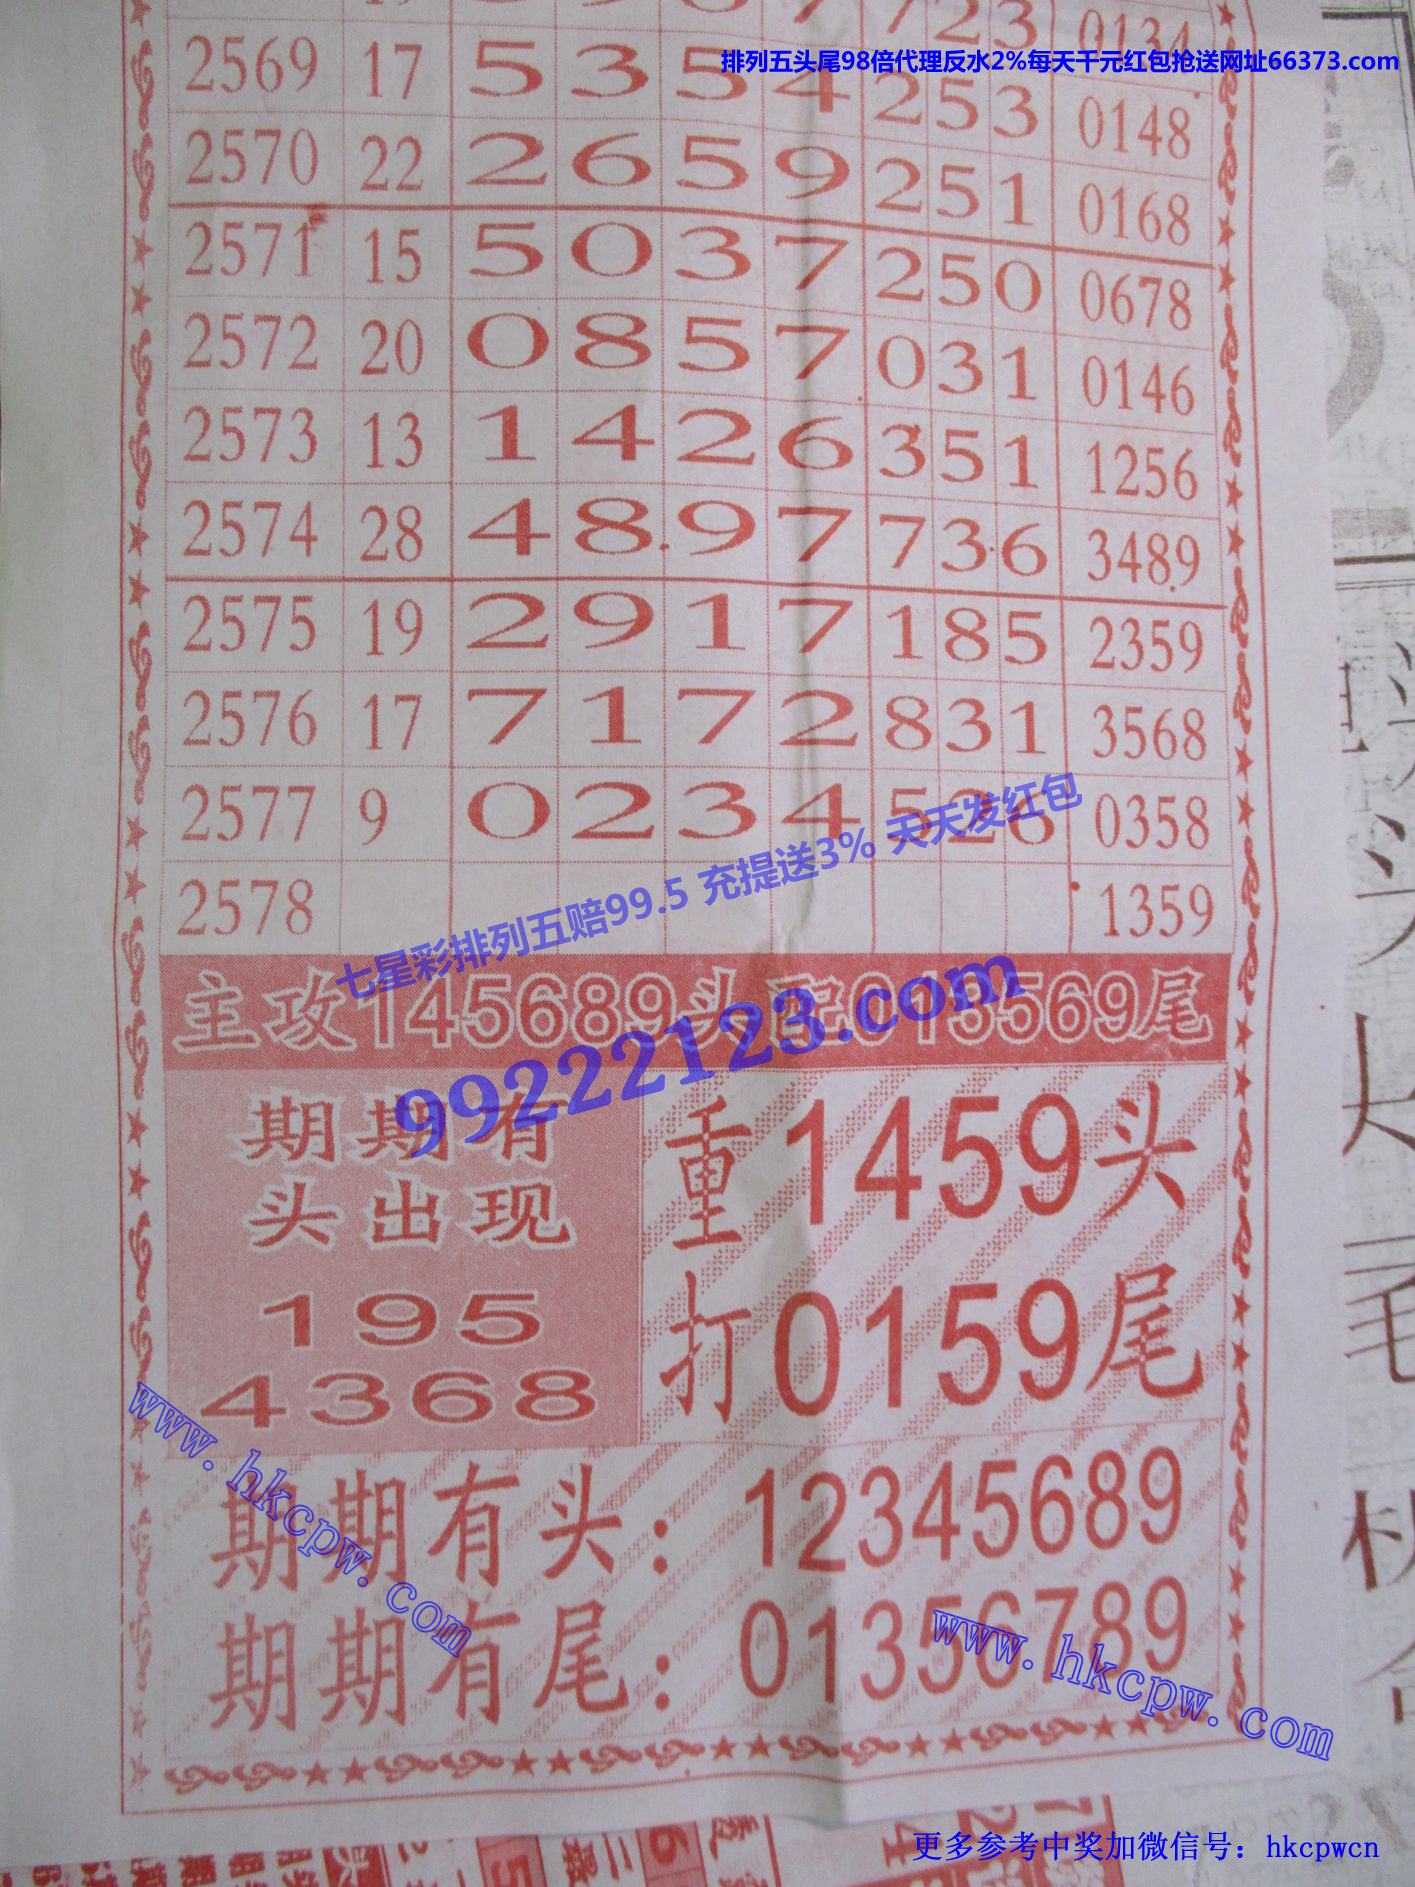 排列五头尾98倍代理反水2%每天千元红包抢送网址66373.com
723 0134
2569 17 5 3 5 4 2 5 3 0148
2570 22 2 6 5 9 2 5 1 0168
2571 15 5 0 3 7 2 5 0 0678
2572 20 0 8 5 7 0 3 1 0146
2573 13 1 4 2 6 3 5 1 1256
2574 28 4 8 9 7 7 3 6 3489
2575 19 2 9 1 7 1 8 5 2359
2576 17 7 1 7 2 8 3 1 3568
2577 9 0 2 3 4 5 2 6 0358
2578 1359
七星彩排列五赔99.5 充提送3% 天天发红包
主攻145689头配013569尾
99222123.com
期期有
头出现
195
4368
重1459头
打0159尾
www.hkcpw.com
期期有头：12345689
期期有尾：01356789
www.hkcpw.com
更多参考中奖加微信号：hkcpwcn